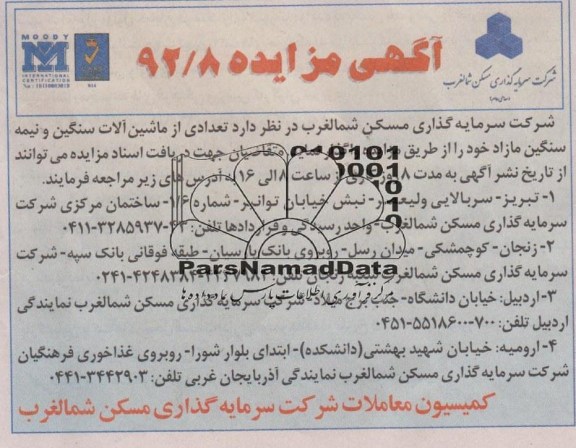 MOODY
INTERNATIONAL
CERTIFICATION
آگهی مزایده ۹۲/۸
شرکت سرمایه گذاری مسکن شمالغرب
شرکت سرمایه گذاری مسکن شمالغرب در نظر دارد تعدادی از ماشین آلات سنگین و نیمه
سنگین مازاد خود را از طریق متقاضیان جهت دریافت اسناد مزایده می توانند
از تاریخ نشر آگهی به مدت ۸ از ساعت ۸ الی ۱۶ به آدرس های زیر مراجعه فرمایند.
۱- تبریز- سربالایی ولیعصر- نبش خیابان توانیر- شماره ۱/۶- ساختمان مرکزی شرکت
سرمایه گذاری مسکن شمالغرب- واحد رسیدگی و قراردادها تلفن: ۰۴۱۱-۳۲۸۵۹۳۷-۴۳
۲- زنجان- کوچمشکی- میدان رسل- روبروی بانک پارسیان- طبقه فوقانی بانک سپه- شرکت
سرمایه گذاری مسکن شمالغرب شعبه زنجان تلفن: ۰۲۴۱-۴۲۴۸۳
۳- اردبیل: خیابان دانشگاه- جنب برج میلاد- شرکت سرمایه گذاری مسکن شمالغرب نمایندگی
اردبیل تلفن: ۷۰۰-۰۴۵۱-۵۵۱۸۶۰۰
۴- ارومیه: خیابان شهید بهشتی(دانشکده)- ابتدای بلوار شورا- روبروی غذاخوری فرهنگیان
شرکت سرمایه گذاری مسکن شمالغرب نمایندگی آذربایجان غربی تلفن: ۰۴۴۱-۳۴۴۲۹۰۳
کمیسیون معاملات شرکت سرمایه گذاری مسکن شمالغرب
010101
0001
10
ParsNamadData